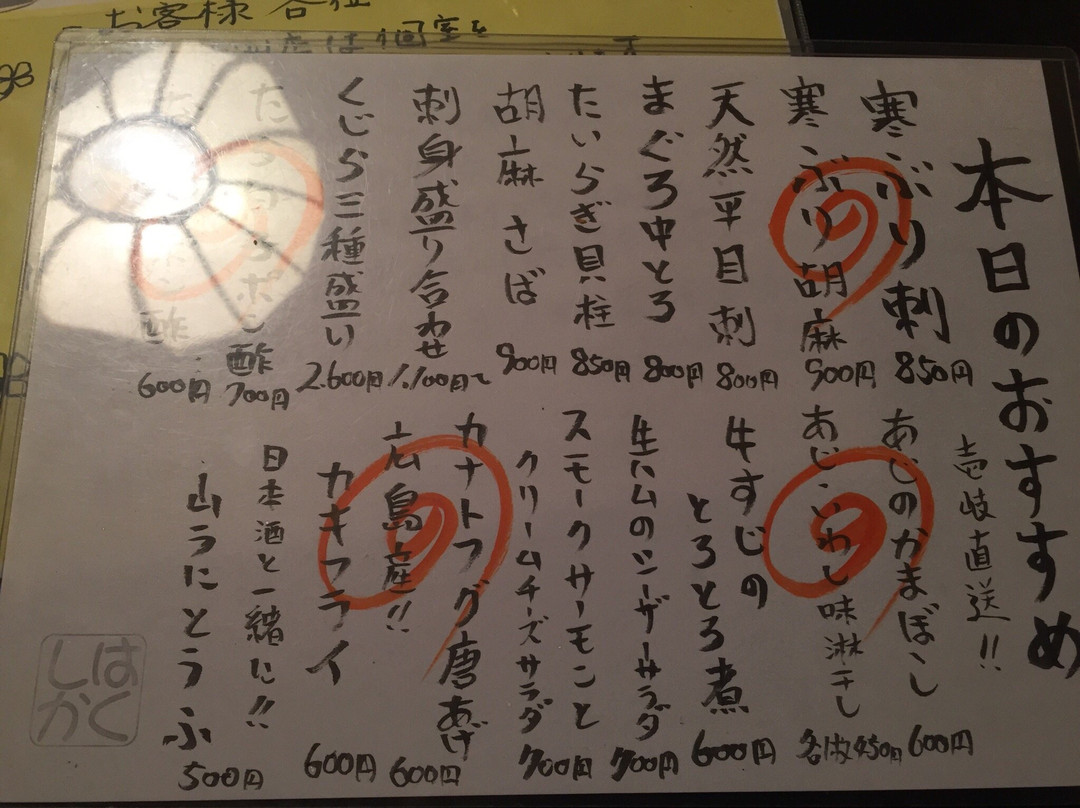 お客様 各位
本日のおすすめ
寒ぶり刺 850円
寒ぶり胡麻 900円
天然平目刺 800円
まぐろ中とろ 800円
たいらぎ貝柱 850円
胡麻さば 900円
刺身盛り合わせ 1.100円〜
くじら三種盛り 2.600円
ポン酢 700円
酢 600円
壱岐直送!!
あじのかまぼし 600円
あじ・いわし味淋干し 各1枚450円
牛すじの
とろとろ煮 600円
生ハムのシーザーサラダ 700円
スモークサーモンと
クリームチーズサラダ 700円
カナトフグ唐あげ 600円
広島産!!
カキフライ 600円
日本酒と一緒に!!
山うにとうふ 500円
はく
しか